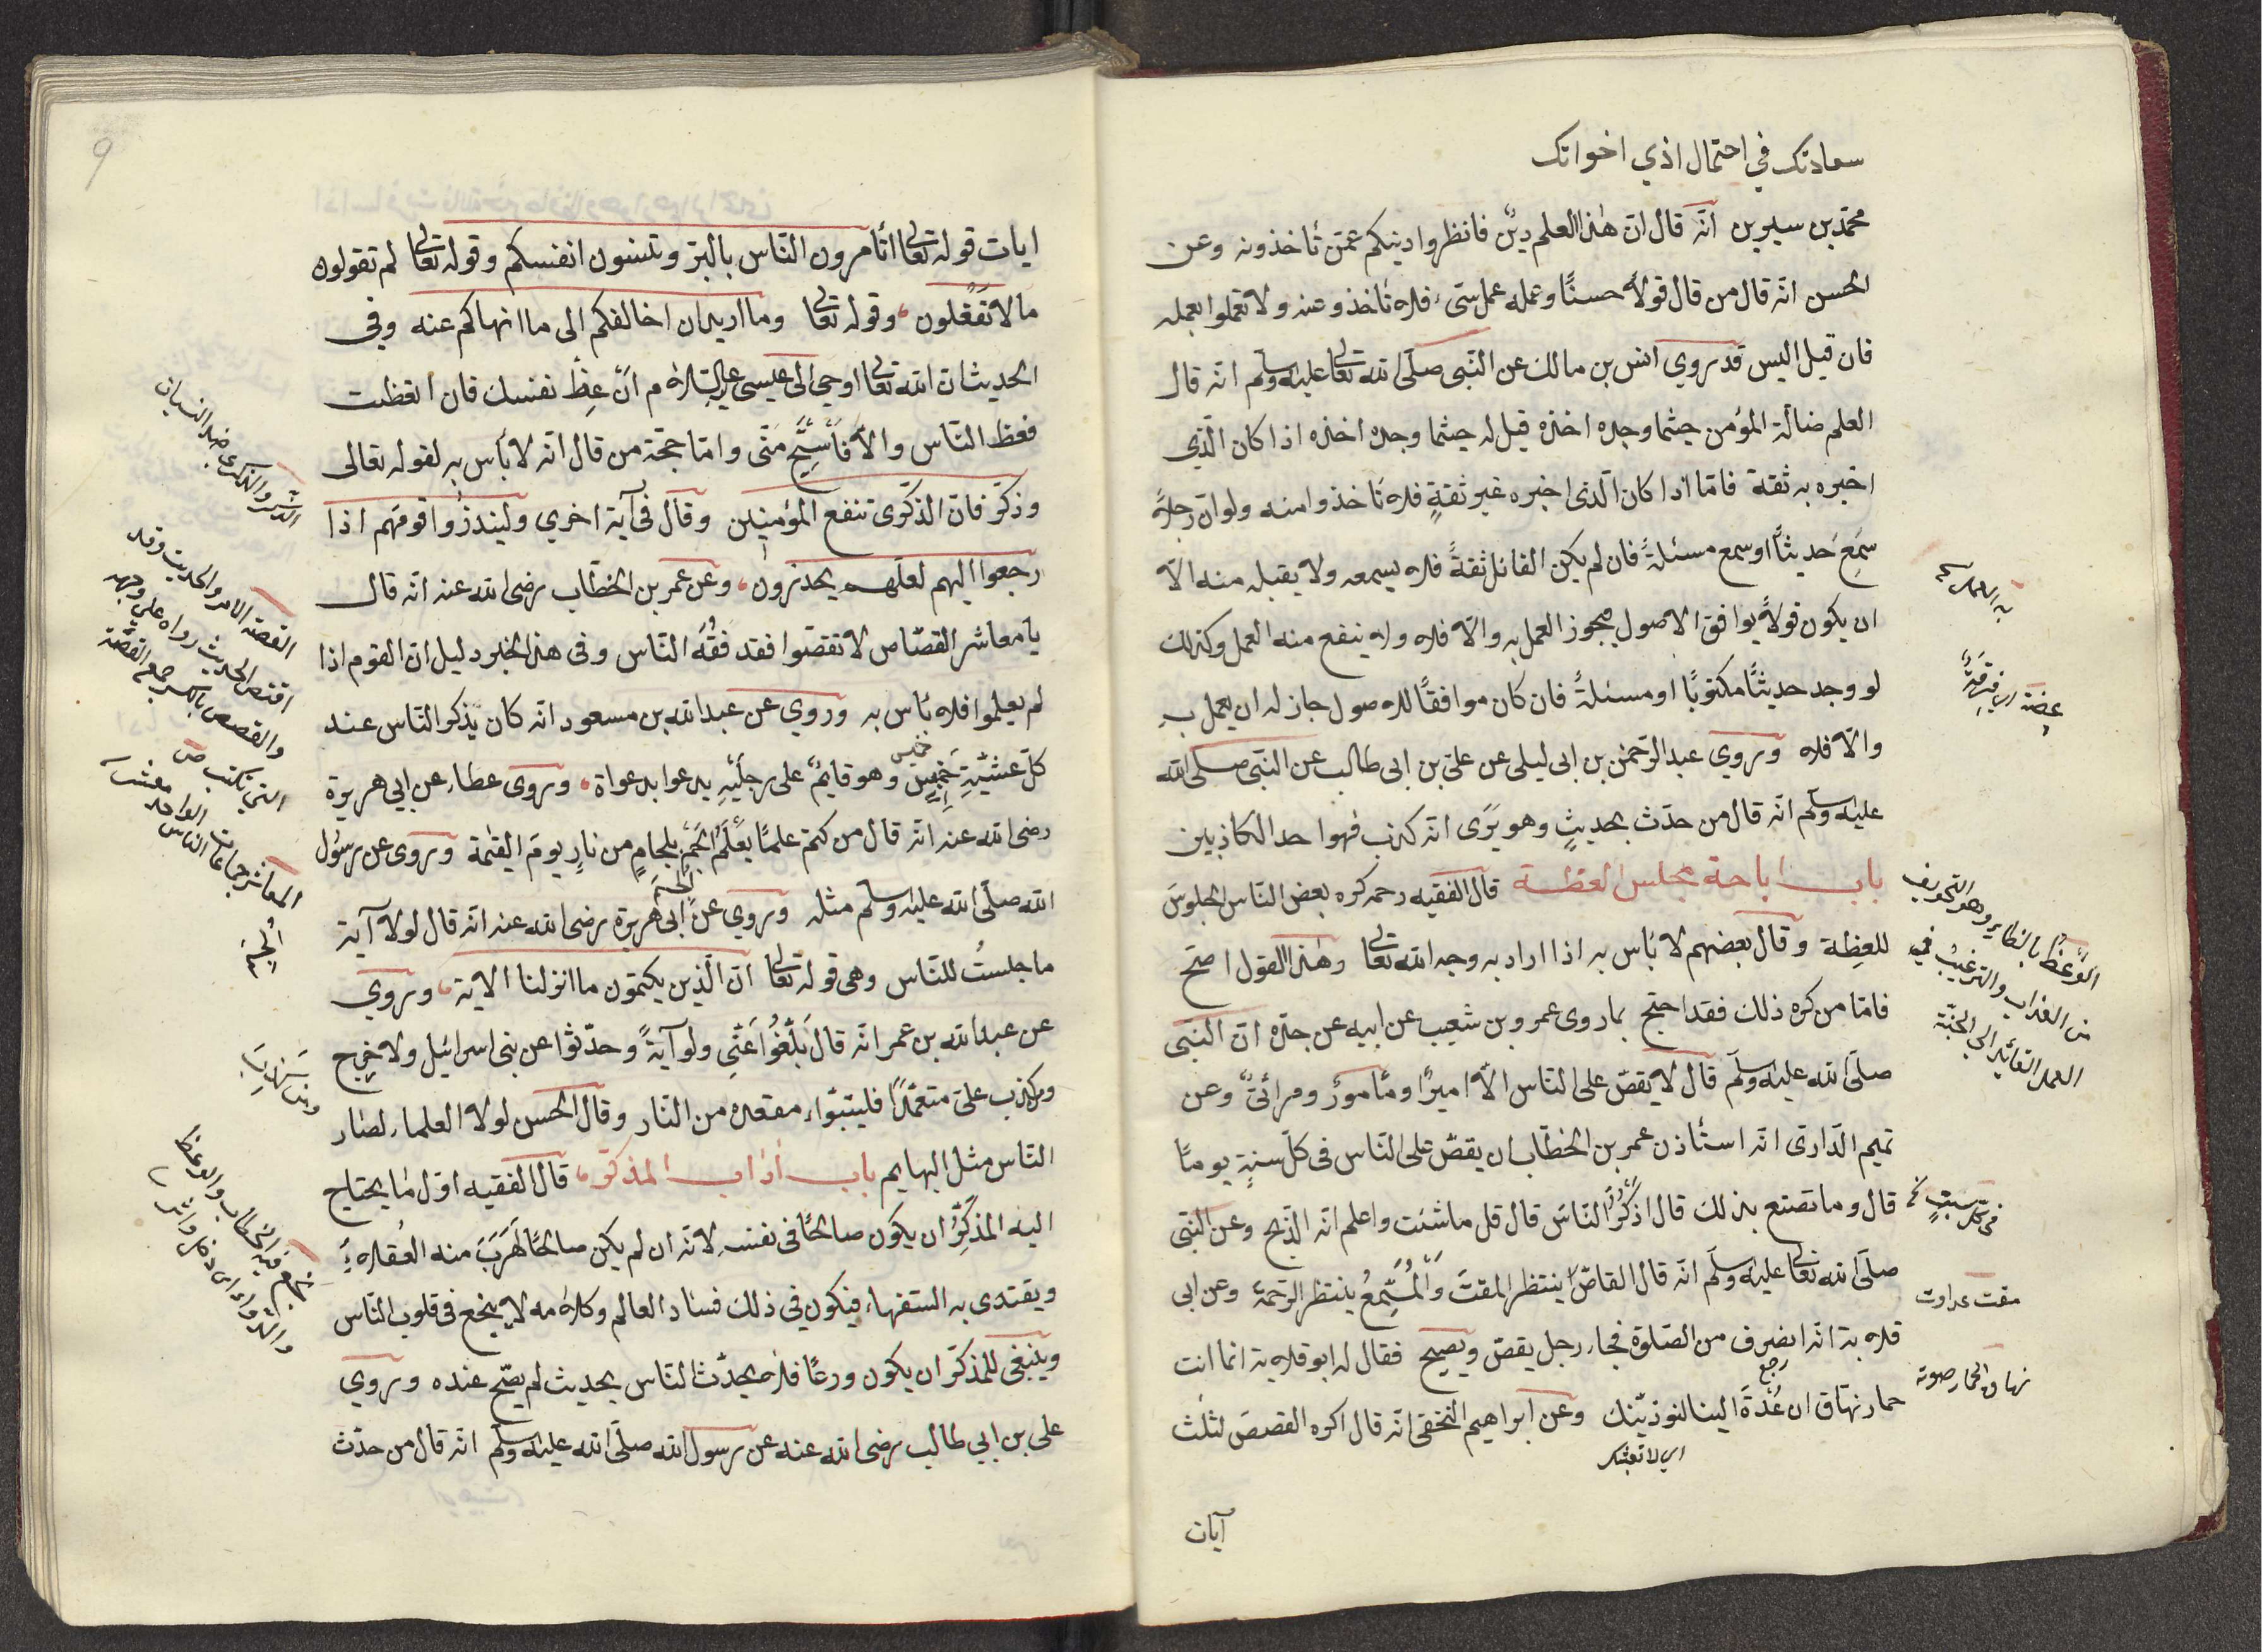 سعادتك في احتمال اذي اخوانك
محمّد بن سيرين انّه قال انّ هٰذا العلم دينٌ فانظروا دينكم عمّن تأخذونه وعن
الحسن انّه قال من قال قولاً حسنًا وعمله عمل سيّء فلا تأخذو عنه ولا تعملوا بعمله
فان قيل اليس قد روي انس بن مالك عن النّبى صلّى الله تعالى عليه وسلّم انّه قال
العلم ضالّة المؤمن حيثما وجده اخذه قيل له حيثما وجده اخذه اذا كان الّذي
اخبره به ثقة فامّا اذا كان الّذى اخبره غير ثقةٍ فلا تأخذوا منه ولو انّ رجلاً
سَمِعَ حديثاً او سمع مسئلةً فان لم يكن القائل ثقةً فلا يسمعه ولا يقبله منه الّا
ان يكون قولاً يوافق الاصول فيجوز العمل به والّا فلا ولا ينفع منه العمل وكذلك
لو وجد حديثًا مكتوبًا او مسئلةً فان كان موافقًا للاصول جاز له ان يعمل به
والّا فلا وروي عبد الرّحمٰن بن ابى ليلى عن علىّ بن ابى طالب عن النّبى صلّى الله
عليه وسلّم انّه قال من حدّث بحديثٍ وهو يَرَى انّه كذب فهوا حد الكاذبين
باب اباحة مجلس العظة قال الفقيه رحمه كره بعض النّاس الجلوسَ
للعِظة وقال بعضهم لا بأس به اذا اراد به وجه الله تعالى وهٰذا القول اصحّ
فامّا من كره ذلك فقد احتجّ بما روى عمرو بن شعيب عن ابيه عن جدّه انّ النّبى
صلّى الله عليه وسلّم قال لا يقصّ على النّاس الّا اميرٌ او مأمورٌ ومرائىٌ وعن
تميم الدّارىّ انّه استأذن عمر بن الخطّاب ان يقصّ على النّاس فى كلّ سنةٍ يومًا
قال وما تصنع بذلك قال اذكّرُ النّاسَ قال قل ما شئت واعلم انّه الذّبح وعن النّبى
صلّى الله تعالى عليه وسلّم انّه قال القاصّ ينتظر المقتَ والمُسْتَمِعُ ينتظر الرّحمة وعن ابى
قلابة انّه انصرف من الصّلوة فجاء رجل يقصّ ويصيح فقال له ابو قلابة انما انت
حمار نهاّق ان عُدْتَ الينا لنوذينّك وعن ابراهيم النّخعى انّه قال اكره القصص لثلث
رجع
آيات
به العمل
عصبة اى فرقةٌ
الوَعظُ بالظاير وهو التخويف
من العذاب والترغيب فى
العمل القائد الى الجنّة
فى كلّ سبتٍ
مقت عداوت
نهاق الحمار صوته
ايات قوله تعالى أتأمرون النّاس بالبرّ وتنسون انفسكم وقوله تعالى لم تقولون
ما لا تفعلون وقوله تعالى وما اريد ان اخالفكم الى ما انهاكم عنه وفى
الحديث انّ الله تعالى اوحى الى عيسى عليه السّلام انْ عِظْ نفسك فان اتّعظت
فعظ النّاس والّا فَاسْتَحِ مِنّى وامّا حجّة من قال انّه لا بأس به لقوله تعالى
وذكّر فانّ الذّكرى تنفع المؤمنين وقال فى آية اخري ولينذروا قومهم اذا
رجعوا اليهم لعلّهم يحذرون وعن عمر بن الخطّاب رضى الله عنه انّه قال
يا معاشر القصّاص لا تقصّوا فقد فقُهَ النّاس وفى هذا الخبر دليل انّ القوم اذا
لم يعلموا فلا بأس به وروي عن عبد الله بن مسعود انّه كان يذكّر النّاس عند
كلّ عشيّةِ خميسٍ وهو قايمٌ على رجليْهِ يدعوا بدعواة وروى عطاء عن ابي هريرة
رضى الله عنه انّه قال من كتم علمًا يعلَمُ الجم بلجامٍ من نارٍ يومَ القيٰمة وروى عن رسول
الله صلّى الله عليه وسلّم مثله وروي عن ابى هريرة رضى الله عنه انّه قال لولا آية
ما جلستُ للنّاس وهى قوله تعالى انّ الّذين يكتمون ما انزلنا الاية وروي
عن عبد الله بن عمر انّه قال بَلِّغُوا عَنّى ولو آيةً وحدّثوا عن بنى اسرائيل ولا حرج
ومن كذب علىّ متعمّدًا فليتبوّاء مقعده من النّار وقال الحسن لولا العلماء لصار
النّاس مثل البهايم باب اداب المذكّر قال الفقيه اوّل ما يحتاج
اليه المذكِّرُ ان يكون صالحًا فى نفسه لانّه ان لم يكن صالحًا لهَرَبَ منه العُقلاءُ
ويقتدى به السّفهاء فيكون في ذلك فساد العالم وكلامه لا ينجع فى قلوب النّاس
وينبغى للمذكّر ان يكون ورعًا فلا يحدّث النّاس بحديث لم يصحّ عنده وروي
على بن ابي طالب رضى الله عنه عن رسول الله صلّى الله عليه وسلّم انّه قال من حدّث
والذكرى ضد النسيان
القصّة الامر والحديث وقد
اقتص الحديث رواه على وجهه
والقصص بالكسر جمع القصّة
التى تكتب ص
المعاشر جماعات النّاس الواحد معشر
اُلْجِمَ
9